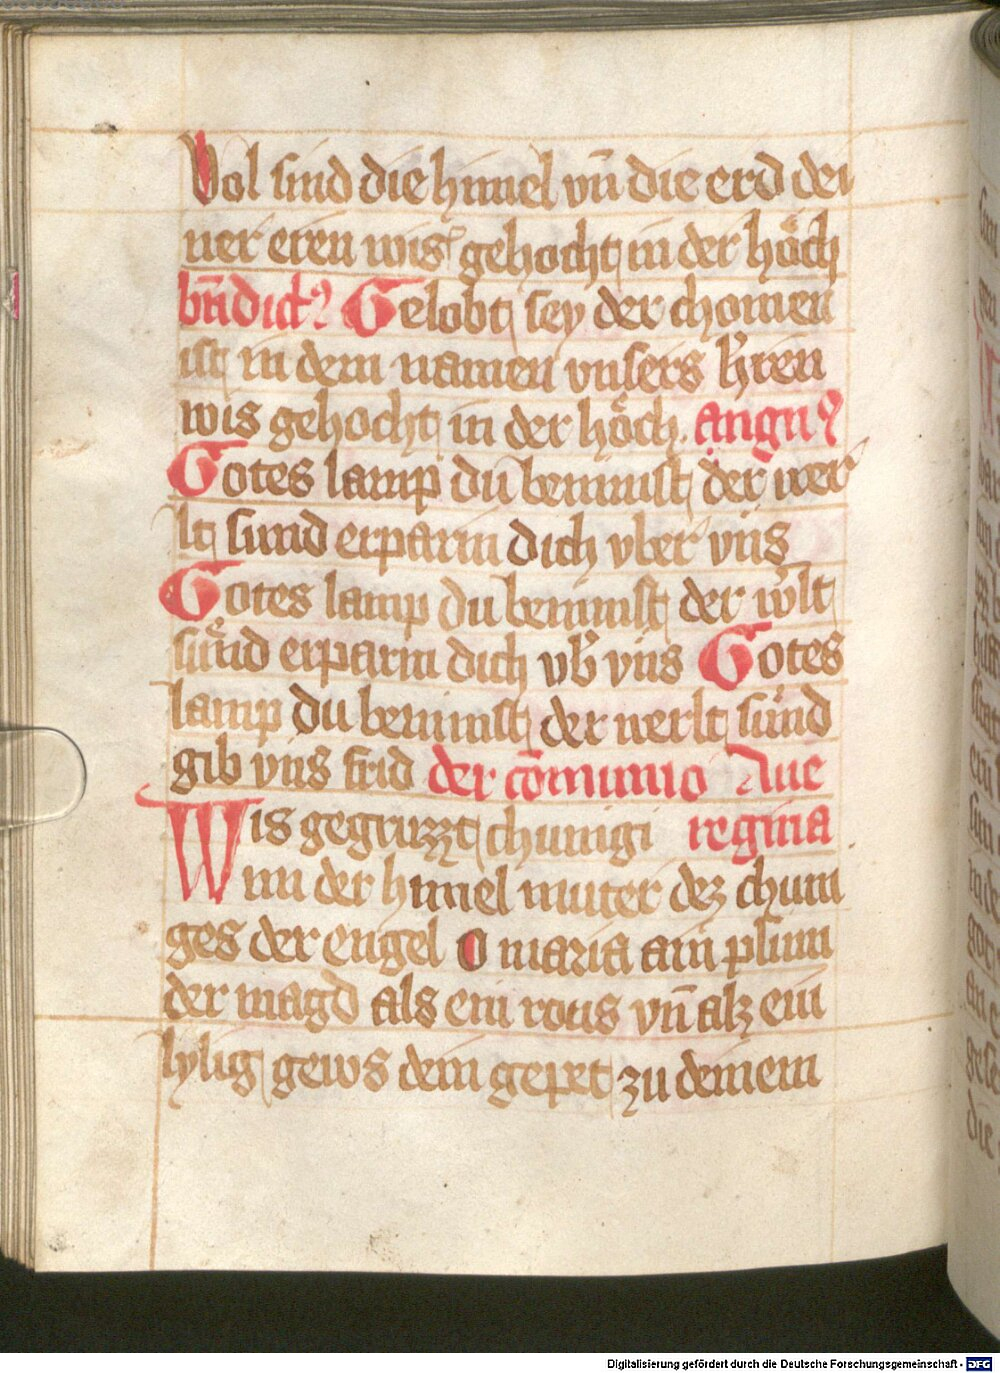 Vol sind die himel vn̄ die erd dei
ner eren wis gehocht in der hoͤch
bn̄dictꝰ Gelobt sey der chomen
ist in dem namen vnsers h̾ren
wis gehocht in der hoͤch. angnꝰ
Gotes lamp du benimst der wer
lt sund erparm dich vber vns
Gotes lamp du benimst der w̾lt
suͤnd erparm dich vb̾ vns Gotes
lamp du benimst der werlt suͤnd
gib vns frid der cōmunio Aue
Wis gegruzzt chunigi regina
nn der himel muter dez chuni
ges der engel O maria ain plum
der magd als ein rous vn̄ alz ein
lylig gews dein gepet zu deinem
Digitalisierung gefördert durch die Deutsche Forschungsgemeinschaft - DFG